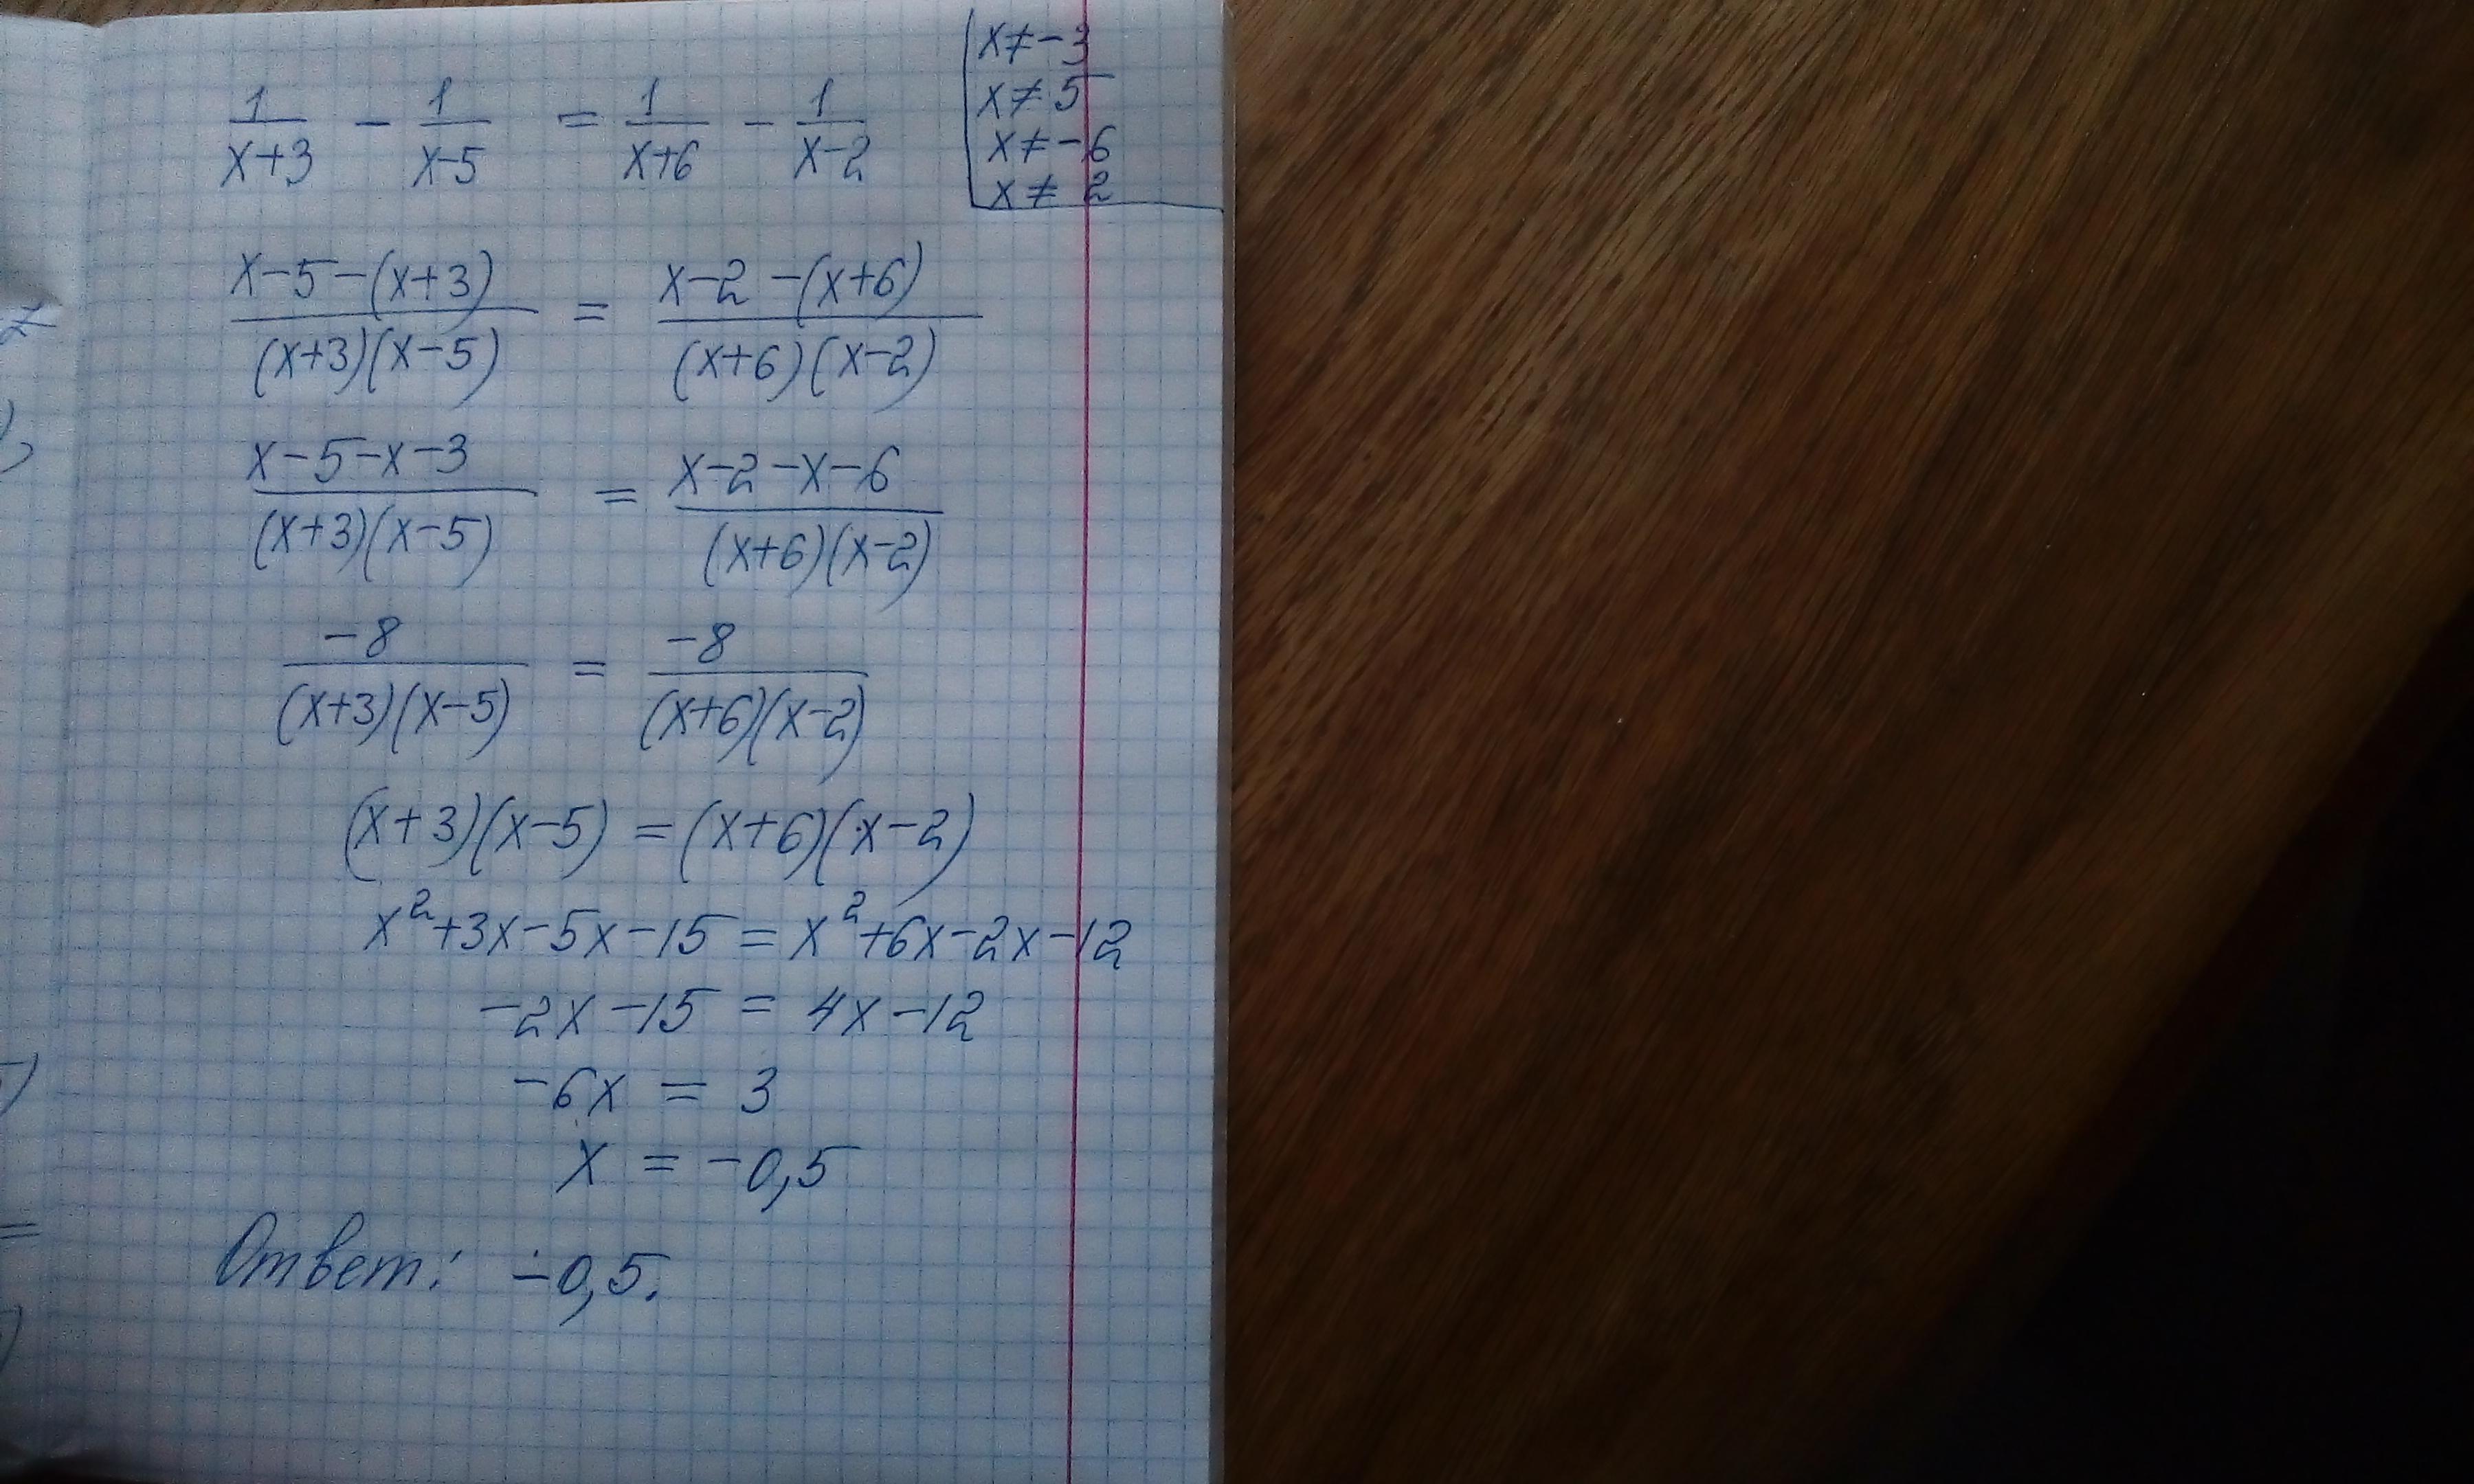 1/(x+3) − 1/(x−5) = 1/(x+6) − 1/(x−2)
x ≠ −3
x ≠ 5
x ≠ −6
x ≠ 2
(x−5−(x+3))/((x+3)(x−5)) = (x−2−(x+6))/((x+6)(x−2))
(x−5−x−3)/((x+3)(x−5)) = (x−2−x−6)/((x+6)(x−2))
−8/((x+3)(x−5)) = −8/((x+6)(x−2))
(x+3)(x−5) = (x+6)(x−2)
x²+3x−5x−15 = x²+6x−2x−12
−2x−15 = 4x−12
−6x = 3
x = −0,5
Ответ: −0,5.